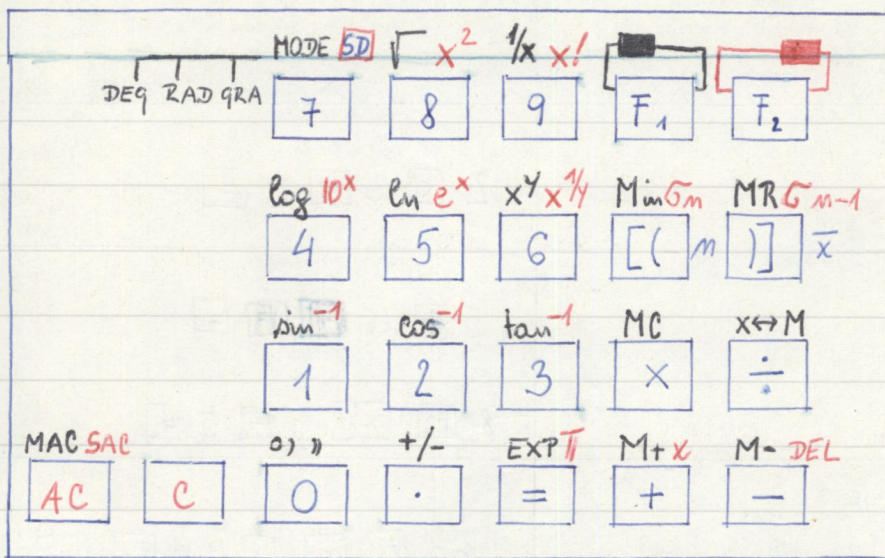 MODE SD √ x² 1/x x!
DEG RAD GRA
7 8 9 F1 F2
log 10ˣ ln eˣ xʸ x^1/y Min σn MR σn-1
4 5 6 [( n )] x̄
sin⁻¹ cos⁻¹ tan⁻¹ MC x↔M
1 2 3 × ÷
MAC SAC o,,, +/- EXP π M+ x M- DEL
AC C 0 · = + −